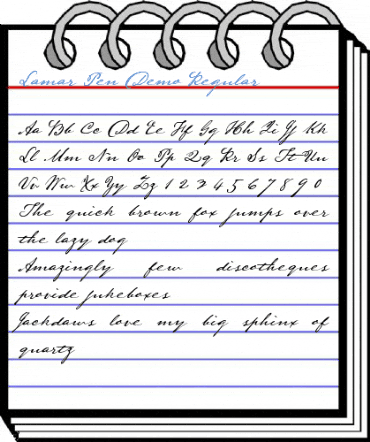 Lamar Pen Demo Regular
Aa Bb Cc Dd Ee Ff Gg Hh Ii Jj Kk
Ll Mm Nn Oo Pp Qq Rr Ss Tt Uu
Vv Ww Xx Yy Zz 1 2 3 4 5 6 7 8 9 0
The quick brown fox jumps over
the lazy dog
Amazingly few discotheques
provide jukeboxes
Jackdaws love my big sphinx of
quartz